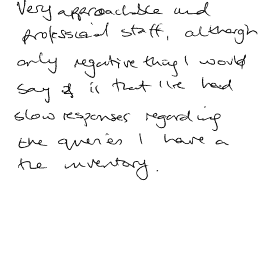 Very approachable and
professional staff, although
only negative thing I would
say is that I've had
slow responses regarding
the queries I have on
the inventory.